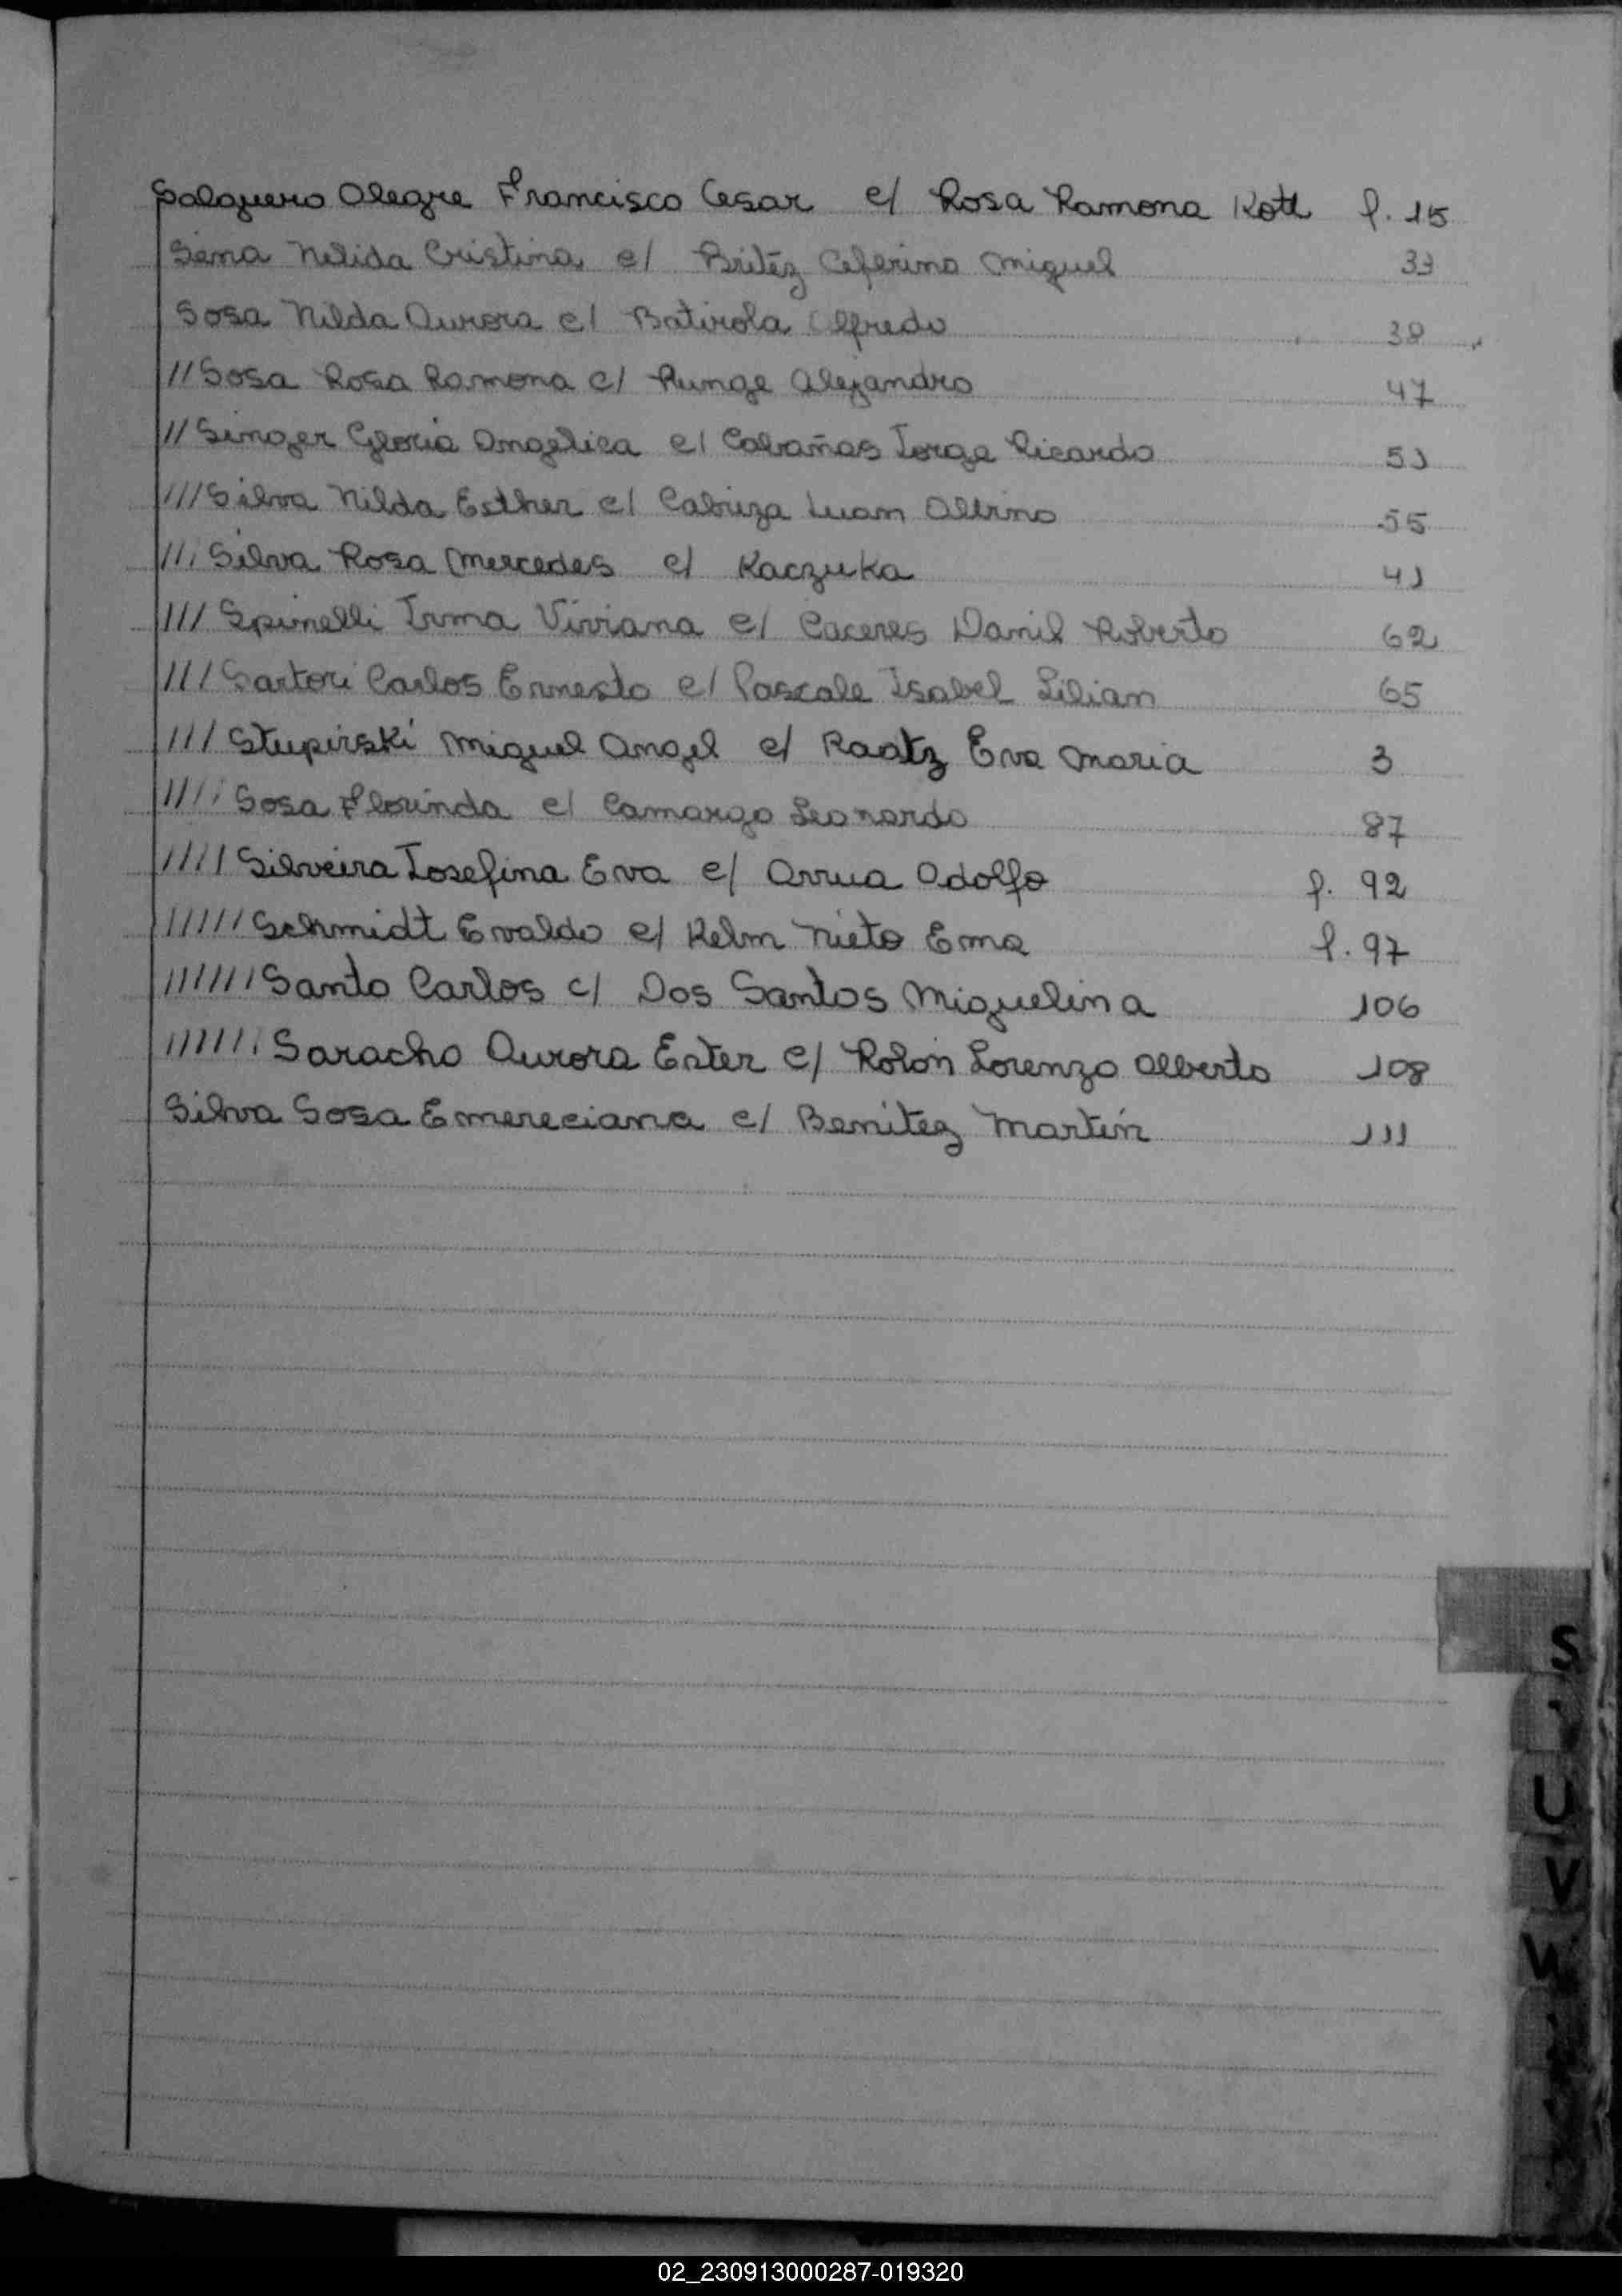 Salguero Alegre Francisco Cesar c/ Rosa Ramona Kott f. 15
Sena Nelida Cristina c/ Britez Ceferino Miguel 33
Sosa Nilda Aurora c/ Batirola Alfredo 38
// Sosa Rosa Ramona c/ Runge Alejandro 47
// Singer Gloria Angelica c/ Cabañas Jorge Ricardo 51
/// Silva Nilda Esther c/ Cabriza Juan Albino 55
/// Silva Rosa Mercedes c/ Kaczuka 41
/// Spinelli Irma Viviana c/ Caceres Daniel Roberto 62
/// Sartori Carlos Ernesto c/ Pascale Isabel Lilian 65
/// Stupirski Miguel Angel c/ Raatz Eva Maria 3
//// Sosa Florinda c/ Camargo Leonardo 87
//// Silveira Josefina Eva c/ Arrua Adolfo f. 92
///// Schmidt Evaldo c/ Kelm Nieto Ema f. 97
////// Santo Carlos c/ Dos Santos Miguelina 106
////// Saracho Aurora Ester c/ Rolón Lorenzo Alberto 108
Silva Sosa Emereciana c/ Benitez Martín 111
S
U
V
W
02_230913000287-019320